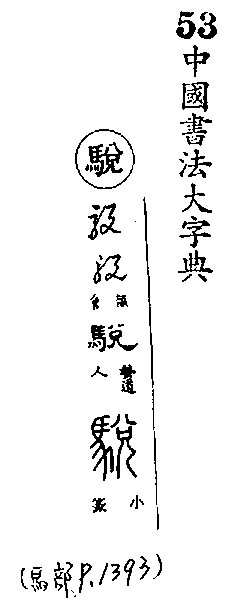 53
中國書法大字典
駾
駾
駾
駾
人
駾
小篆
(馬部P.1393)